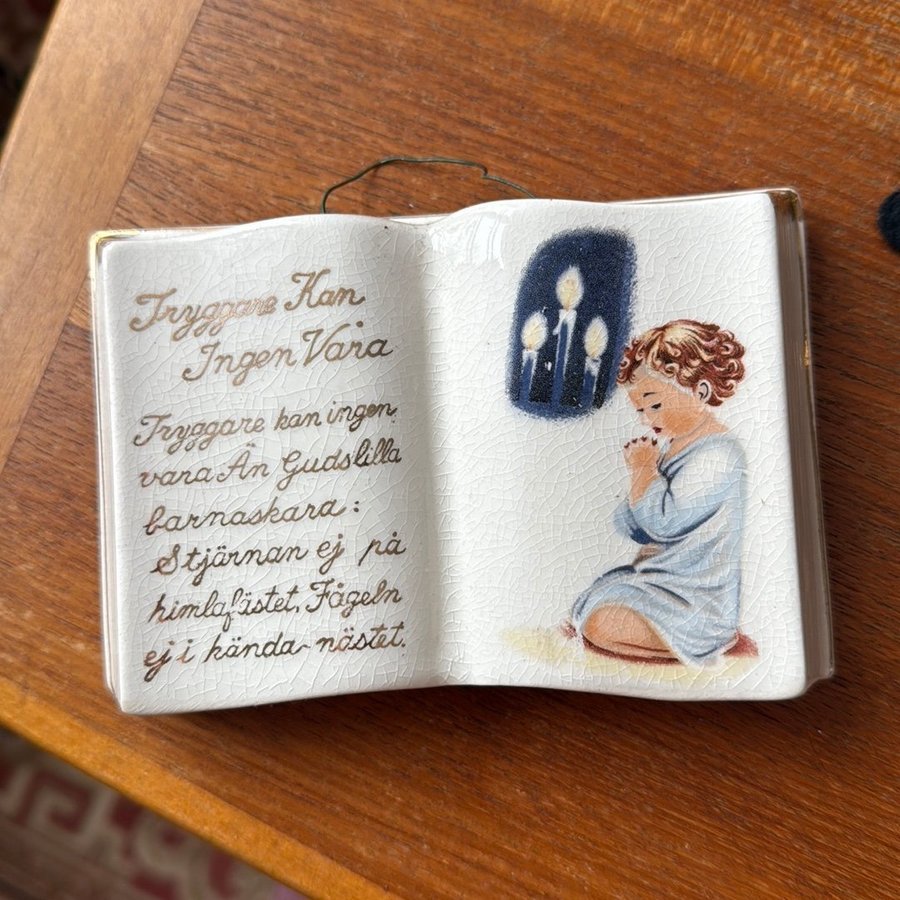 Tryggare Kan
Ingen Vara
Tryggare kan ingen
vara Än Guds lilla
barnaskara:
Stjärnan ej på
himlafästet, Fågeln
ej i kända nästet.